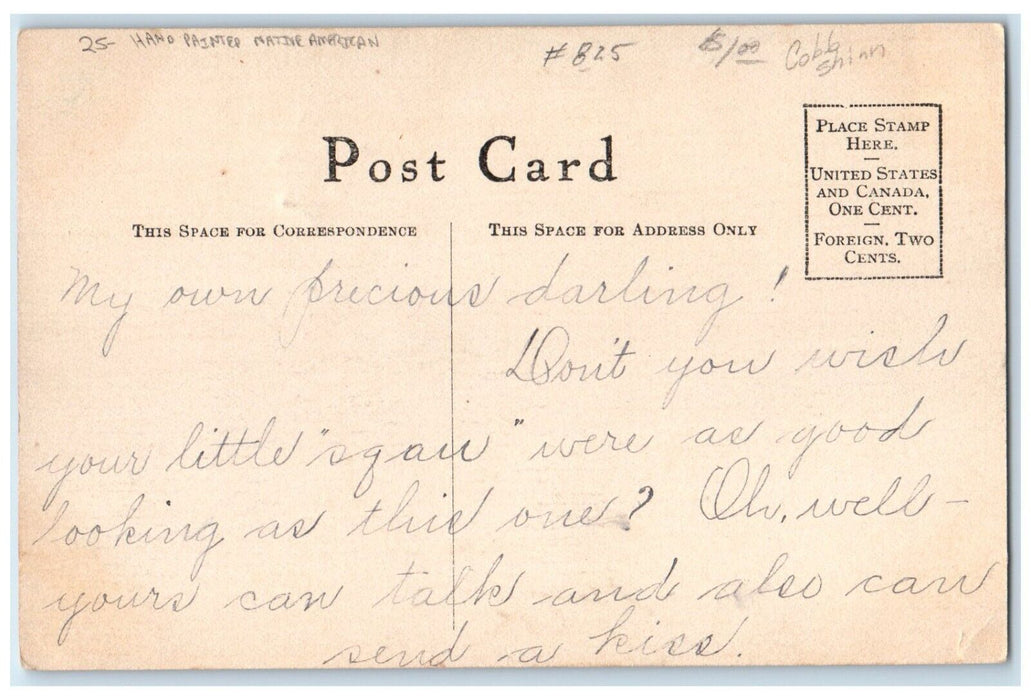 25- HAND PAINTED NATIVE AMERICAN
# 825
$/00
Cobb
Shinn
Post Card
THIS SPACE FOR CORRESPONDENCE
THIS SPACE FOR ADDRESS ONLY
PLACE STAMP
HERE.
UNITED STATES
AND CANADA,
ONE CENT.
FOREIGN, TWO
CENTS.
My own precious darling!
Don't you wish
your little "sqau" were as good
looking as this one? Oh, well-
yours can talk and also can
send a kiss.